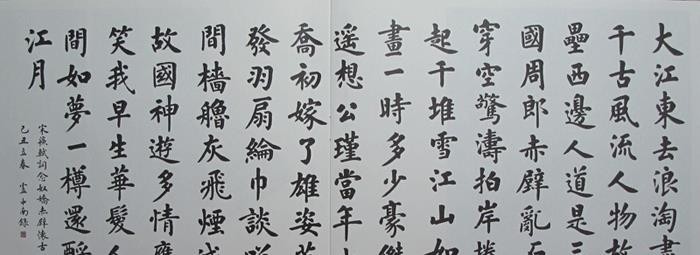 大江東去浪淘盡
千古風流人物故
壘西邊人道是三
國周郎赤壁亂石
穿空驚濤拍岸捲
起千堆雪江山如
畫一時多少豪傑
遥想公瑾當年小
喬初嫁了雄姿英
發羽扇綸巾談笑
間檣艫灰飛煙滅
故國神遊多情應
笑我早生華髮人
間如夢一樽還酹
江月
宋蘇軾詞念奴嬌赤壁懷古
己丑立春 盧中南錄